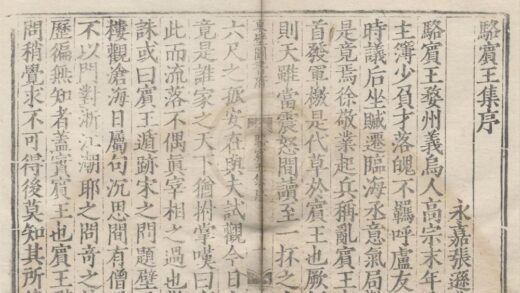 駱賓王集序
永嘉張遜
駱賓王婺州義烏人高宗末年
主簿少負才落魄不羈呼盧友
時議后坐贓遷臨海丞意氣局
是焉徐敬業起兵稱亂賓王
首發軍檄是代草於賓王也厥
則天雖當震怒間讀至一抔之
六尺之孤安在與夫試觀今日
竟是誰家之天下猶拊掌嘆曰
此而流落不偶眞宰相之過也
誅或曰賓王遁跡宋之問題壁
樓觀滄海日屬句沉思間有僧
不以門對浙江潮耶之問奇之
歷徧無知者蓋實賓王也賓王
問稍覺求不可得後莫知其所